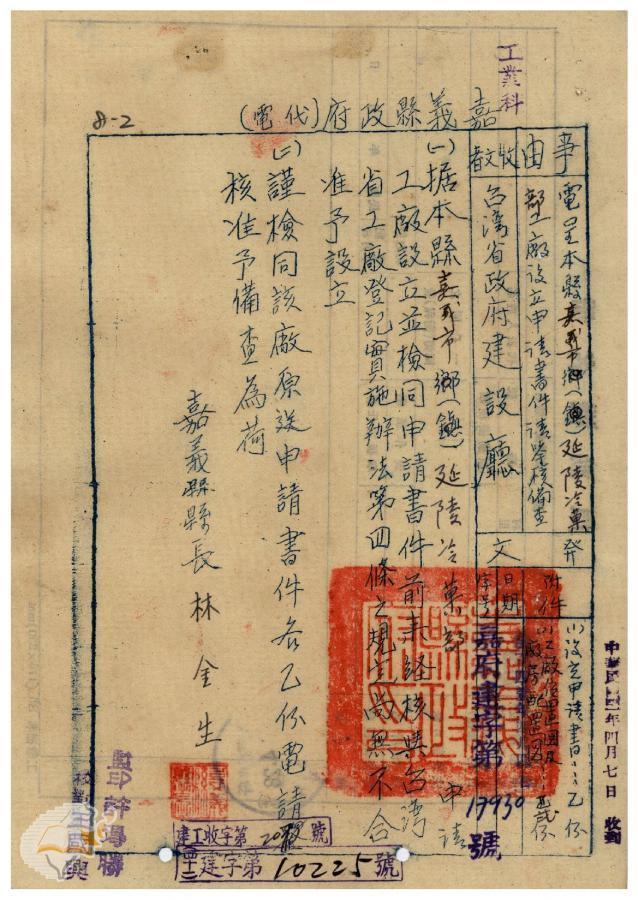 工業科
嘉義縣政府(代電)
8-2
事由
電呈本縣嘉義市鄉(鎮)延陵冷菓
部工廠設立申請書件請鑒核備查
收文者
台灣省政府建設廳
發文
附件
(1)設立申請書…乙份
日期
字號
嘉府建字第17930號
(一)据本縣嘉義市鄉(鎮)延陵冷菓部申請
工廠設立並檢同申請書件前來経核與台灣
省工廠登記實施辦法第四條之規定尚無不合
准予設立
(二)謹檢同該廠原送申請書件各乙份電請鑒
核准予備查為荷
嘉義縣縣長林金生
中華民國四二年四月七日收到
建工收字第 號
四二建字第10225號